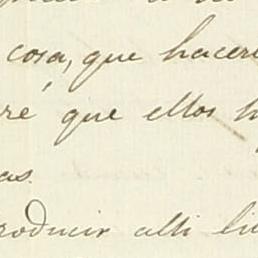 cosa, que hacer
ré que ellos
as.
roducir alli